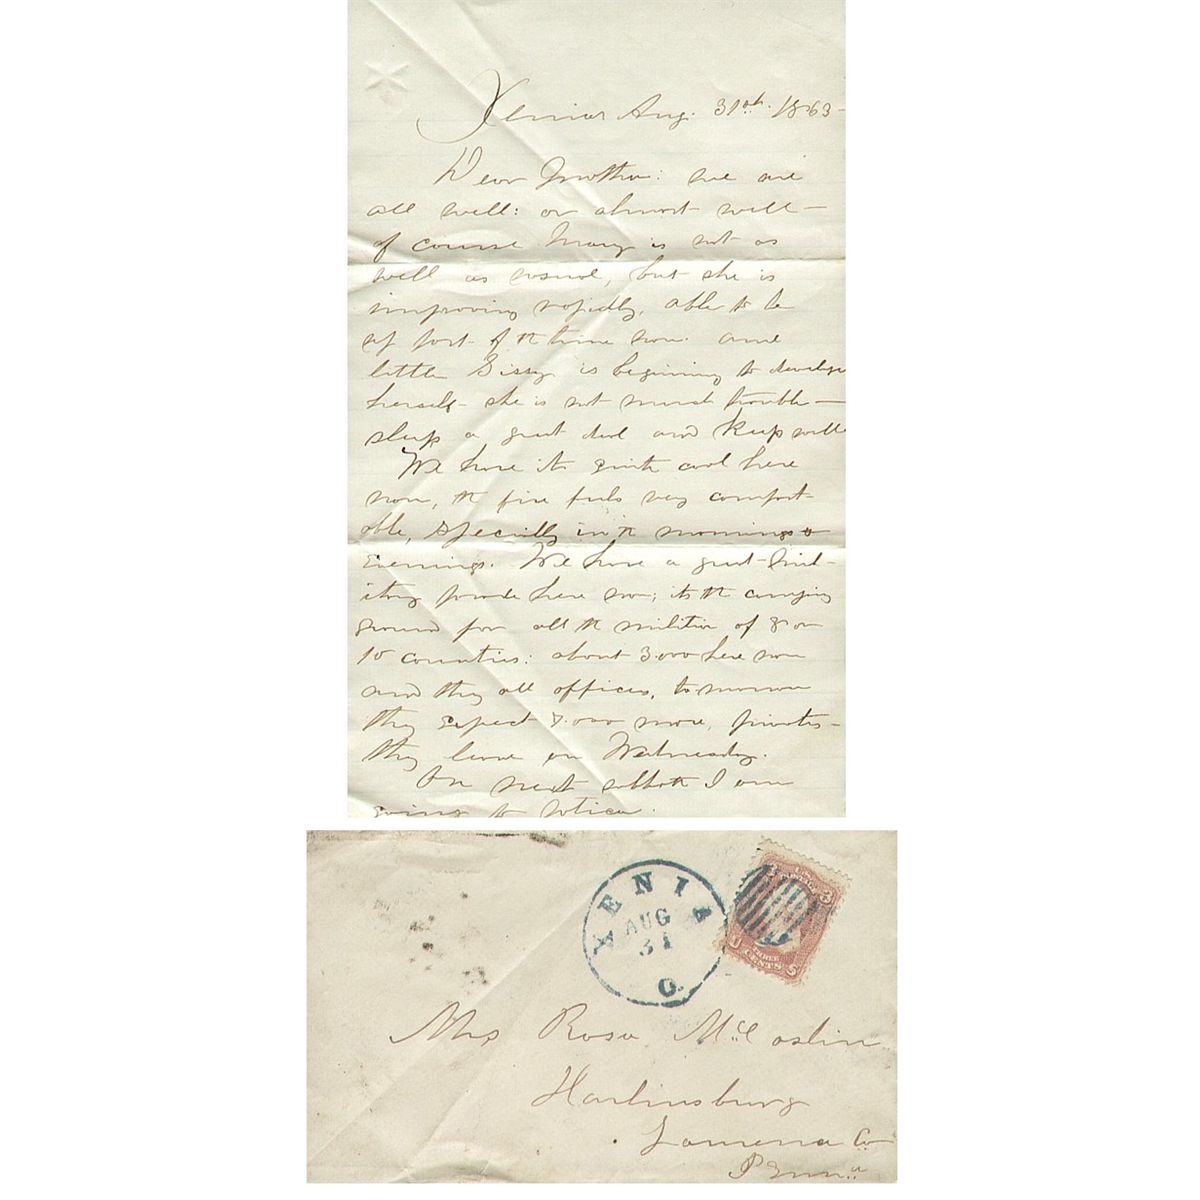 Xenia Aug. 31st. 1863-
Dear Mother: we are
all well: or almost well-
of course Mary is not as
well as usual, but she is
improving rapidly, able to be
up part of th time now. and
little Sissy is beginning to develope
herself- she is not much trouble-
sleeps a great deal and keeps well
We have it quite cool here
now, th fire feels very comfort-
able, especially in th mornings &
Evenings. We have a great
parade here now; its th camping
ground for all th militia of 8 or
10 counties: about 3.000 here now
and they all officers, to-morrow
they expect 8.000 more, privates-
they leave on Wednesday.
On next sabbath I am
going to
XENIA
AUG
31
O.
U.S. POSTAGE
3 3
THREE
CENTS
U S
Mrs Rosa McCaslin
Harlinsburg
Co
Penna